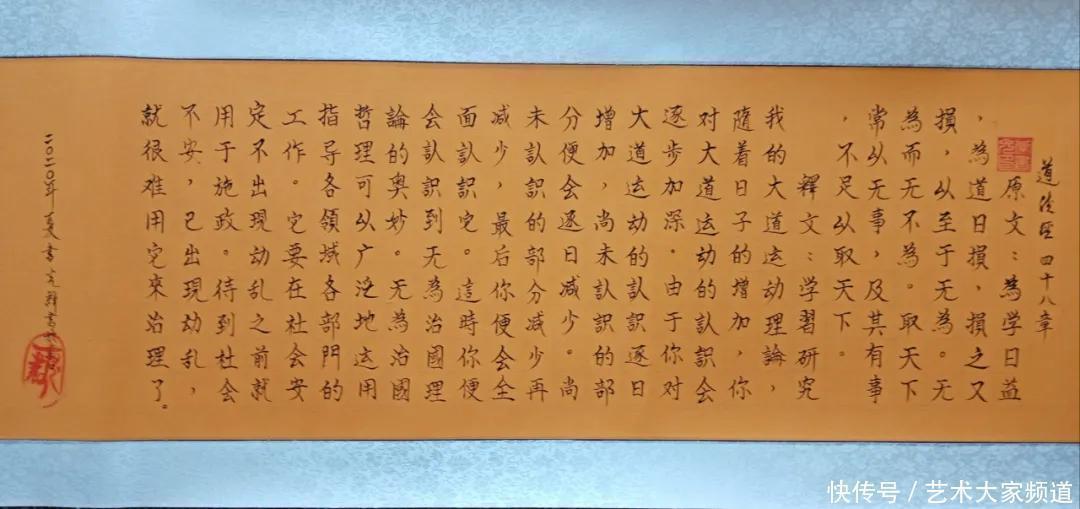 道德經 四十八章
原文:為学日益
,為道日損,損之又
損,以至于无為。无
為而无不為。取天下
常以无事,及其有事
,不足以取天下。
釋文:学習研究
我的大道运动理論,
隨着日子的增加,你
对大道运动的认识会
逐步加深.由于你对
大道运动的认识逐日
增加,尚未认识的部
分便会逐日减少。尚
未认识的部分减少再
减少,最后你便会全
面认识它。這時你便
会认识到无為治國理
論的奥妙。无為治國
哲理可以广泛地运用
指导各領域各部門的
工作。它要在社会安
定不出現动乱之前就
用于施政。待到社会
不安,已出現动乱,
就很难用它來治理了。
二〇二〇年夏
快传号/艺术大家频道